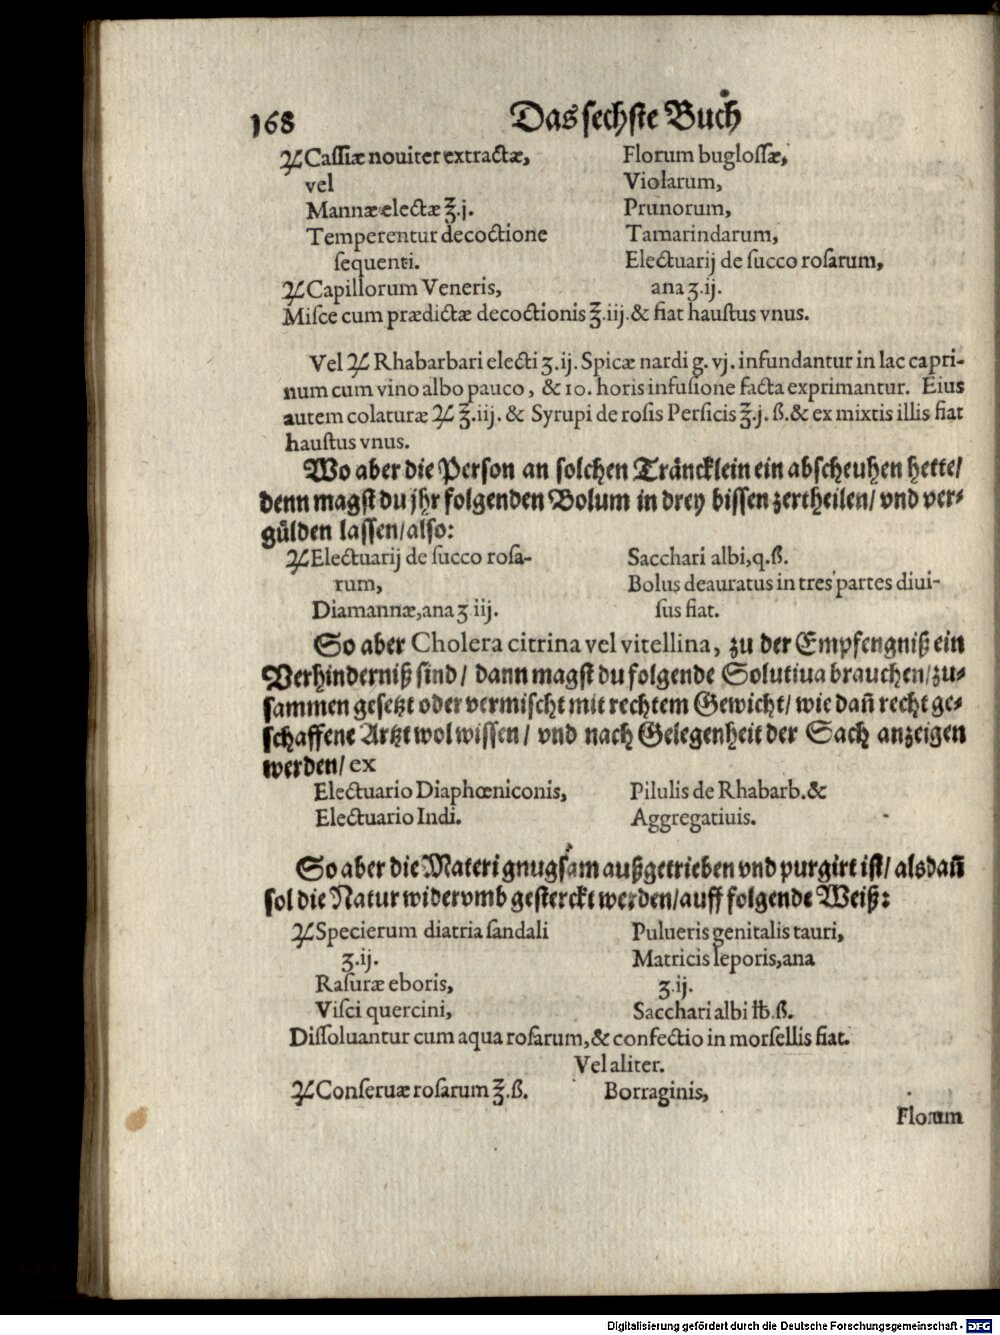 168 Das sechste Buch
℞ Cassiæ nouiter extractæ,
vel
Mannæ electæ ℥.j.
Temperentur decoctione
sequenti.
℞ Capillorum Veneris,
Florum buglossæ,
Violarum,
Prunorum,
Tamarindarum,
Electuarij de succo rosarum,
ana ʒ.ij.
Misce cum prædictæ decoctionis ℥.iij. & fiat haustus vnus.
Vel ℞ Rhabarbari electi ʒ.ij. Spicæ nardi g. vj. infundantur in lac capri-
num cum vino albo pauco, & 10. horis infusione facta exprimantur. Eius
autem colaturæ ℞ ℥.iij. & Syrupi de rosis Persicis ℥.j. ß. & ex mixtis illis fiat
haustus vnus.
Wo aber die Person an solchen Träncklein ein abscheuhen hette/
denn magst du jhr folgenden Bolum in drey bissen zertheilen/ vnd ver-
gülden lassen/ also:
℞ Electuarij de succo rosa-
rum,
Diamannæ, ana ʒ iij.
Sacchari albi, q.ß.
Bolus deauratus in tres partes diui-
sus fiat.
So aber Cholera citrina vel vitellina, zu der Empfengniß ein
Verhinderniß sind/ dann magst du folgende Solutiua brauchen/ zu-
sammen gesetzt oder vermischt mit rechtem Gewicht/ wie dañ recht ge-
schaffene Artzt wol wissen/ vnd nach Gelegenheit der Sach anzeigen
werden/ ex
Electuario Diaphœniconis,
Electuario Indi.
Pilulis de Rhabarb. &
Aggregatiuis.
So aber die Materi gnugsam außgetrieben vnd purgirt ist/ alsdañ
sol die Natur widerumb gesterckt werden/ auff folgende Weiß:
℞ Specierum diatria sandali
ʒ.ij.
Rasuræ eboris,
Visci quercini,
Pulueris genitalis tauri,
Matricis leporis, ana
ʒ.ij.
Sacchari albi ℔.ß.
Dissoluantur cum aqua rosarum, & confectio in morsellis fiat.
Vel aliter.
℞ Conseruæ rosarum ℥.ß. Borraginis,
Florum
Digitalisierung gefördert durch die Deutsche Forschungsgemeinschaft - DFG